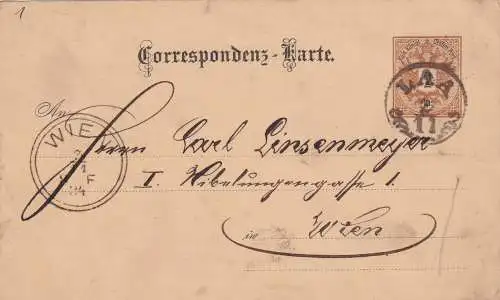 1
Correspondenz-Karte.
LAA
An
WIE
Herrn Carl Linsenmeyer
I. Nibelungengasse 1.
in Wien